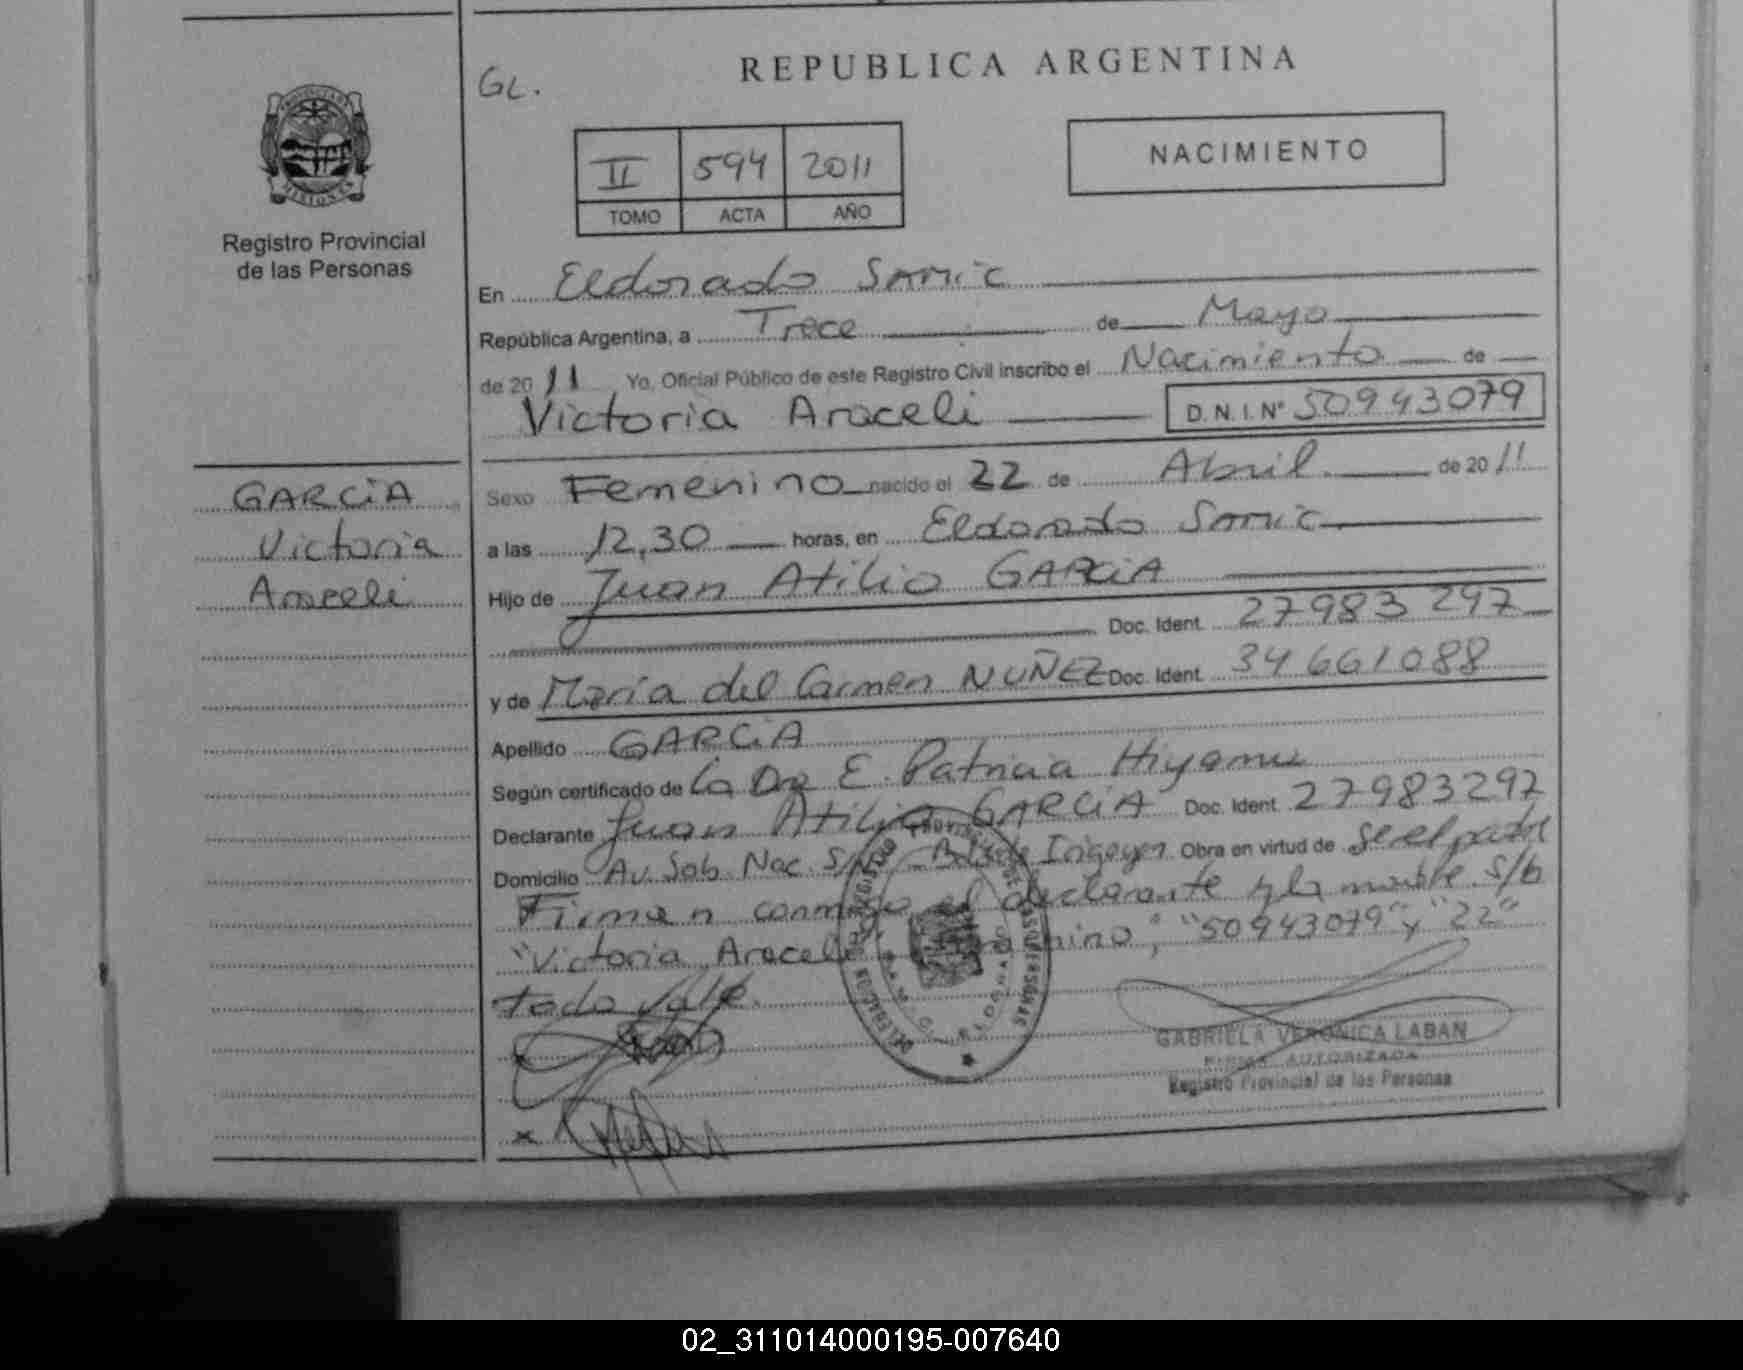 REPUBLICA ARGENTINA
GL.
NACIMIENTO
II 594 2011
TOMO ACTA AÑO
PROVINCIA DE
MISIONES
Registro Provincial
de las Personas
En Eldorado SAMIC
República Argentina, a Trece de Mayo
de 2011 Yo, Oficial Público de este Registro Civil inscribo el Nacimiento de
Victoria Araceli D. N. I. N° 50943079
Sexo Femenino nacido el 22 de Abril de 2011
GARCIA
Victoria
Araceli
a las 12,30 horas, en Eldorado Samic
Hijo de Juan Atilio GARCIA
Doc. Ident. 27983297
y de María del Carmen NUÑEZ Doc. Ident. 34661088
Apellido GARCIA
Según certificado de la Dra E. Patricia
Declarante Juan Atilio GARCIA Doc. Ident. 27983297
Domicilio Av. Sob. Nac. S/N Irigoyen Obra en virtud de ser el padre
Firman conmigo el declarante y la madre. S/b
"Victoria Araceli "50943079" y "22"
todo vale.
DELEGACION
REGISTRO PROVINCIAL DE LAS PERSONAS
ELDORADO
GABRIELA VERONICA LABAN
FIRMA AUTORIZADA
Registro Provincial de las Personas
x
02_311014000195-007640